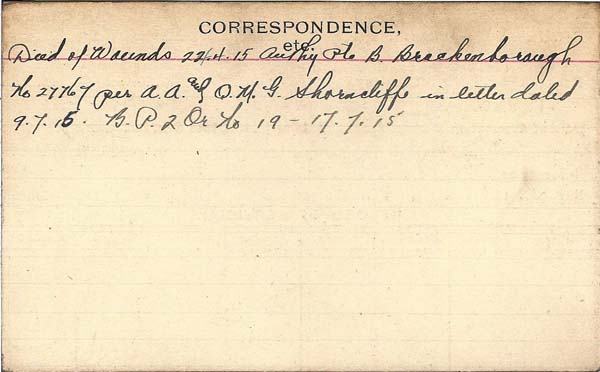 CORRESPONDENCE,
etc.
Died of Wounds 22.4.15 Authy Pte B. Brackenborough
No 27767 per A.A. and Q.M.G. Shorncliffe in letter dated
9.7.15. B.P. 2 Or No 19 - 17.7.15